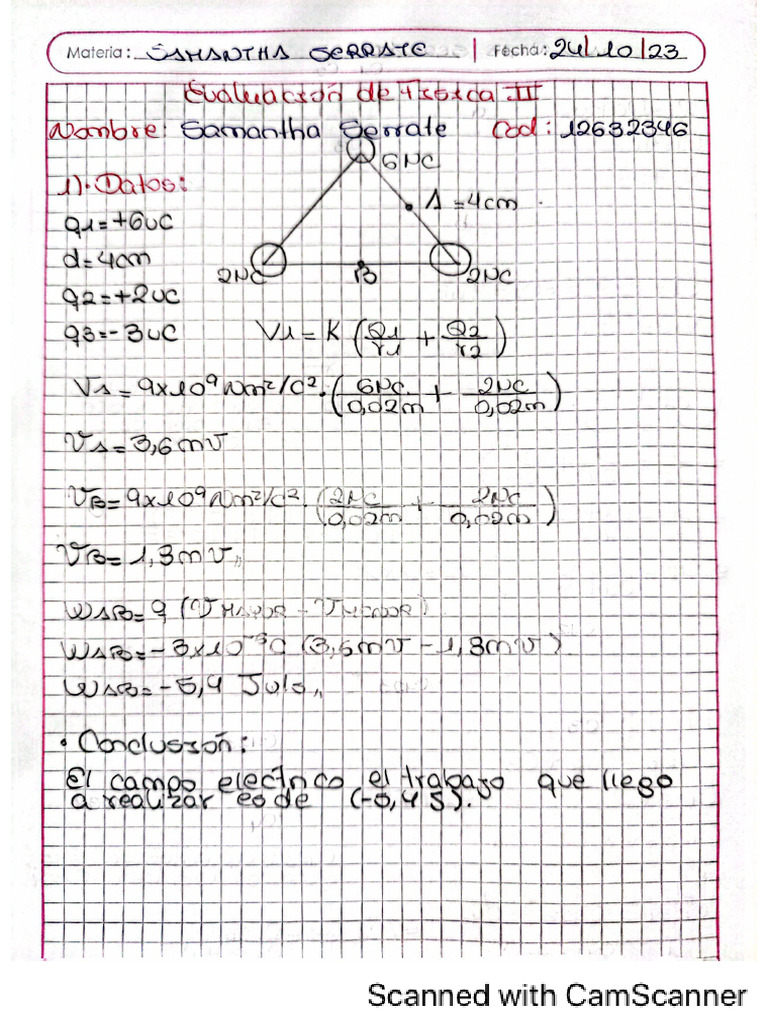 Materia: SAMANTHA SERRATE | Fecha: 24/10/23
Evaluación de Física III
Nombre: Samantha Serrate Cod: 12632346
1). Datos:
6NC
A = 4cm
q1=+6uc
d=4cm
2NC B 2NC
q2=+2uc
q3=-3uc V1 = K (Q1/r1 + Q2/r2)
VA = 9x10⁹ Nm²/C² · (6NC/0,02m + 2NC/0,02m)
VA = 3,6mv
VB= 9x10⁹ Nm²/c² · (2NC/0,02m + 2NC/0,02m)
VB= 1,8mv,,
WAB= q (VMAYOR - VMENOR)
WAB=-3x10⁻⁶C (3,6mv - 1,8mv)
WAB= -5,4 Juls,,
• Conclusión:
El campo electrico el trabajo que llego
a realizar es de (-5,4 J).
Scanned with CamScanner